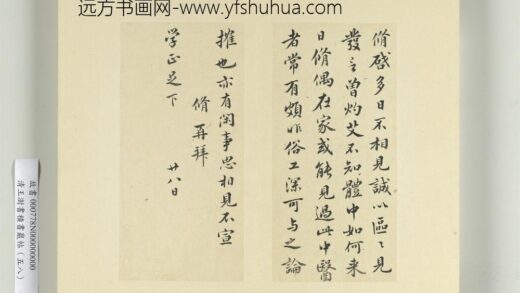 远方书画网-www.yfshuhua.com
脩啓多日不相見誠以區〻見
發言曾灼艾不知體中如何來
日脩偶在家或能見過此中醫
者常有頗非俗工深可与之論
搉也亦有閑事思相見不宣
脩再拜
学正足下
廿八日
故書000778N000000000
清王澍書積書巖帖(五八)